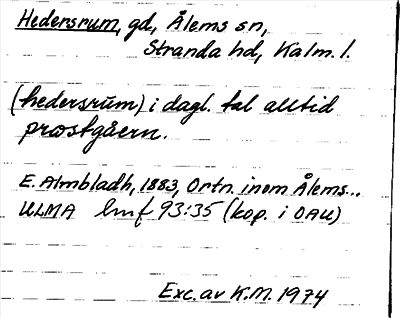 Hedersrum, gd, Ålems sn,
Stranda hd, Kalm. l.
(hedersrum) i dagl. tal alltid
prostgåern.
E. Almbladh, 1883, Ortn. inom Ålems...
ULMA lmf 93:35 (kop. i OAU)
Exc. av K.M. 1974